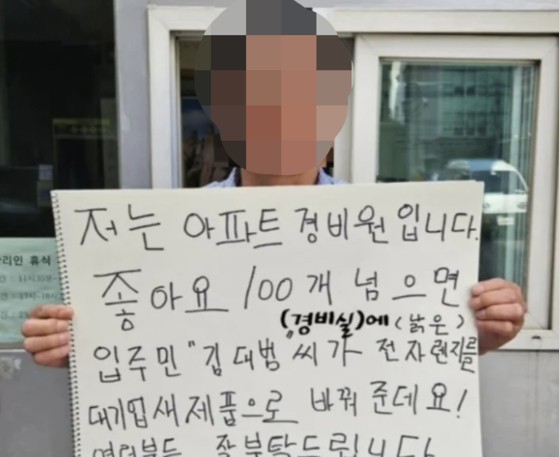 저는 아파트 경비원입니다.
좋아요 100개 넘으면
(경비실)에 (낡은)
입주민 "김대범"씨가 전자렌지를
대기업새제품으로 바꿔준데요!
잘부탁드립니다
휴식